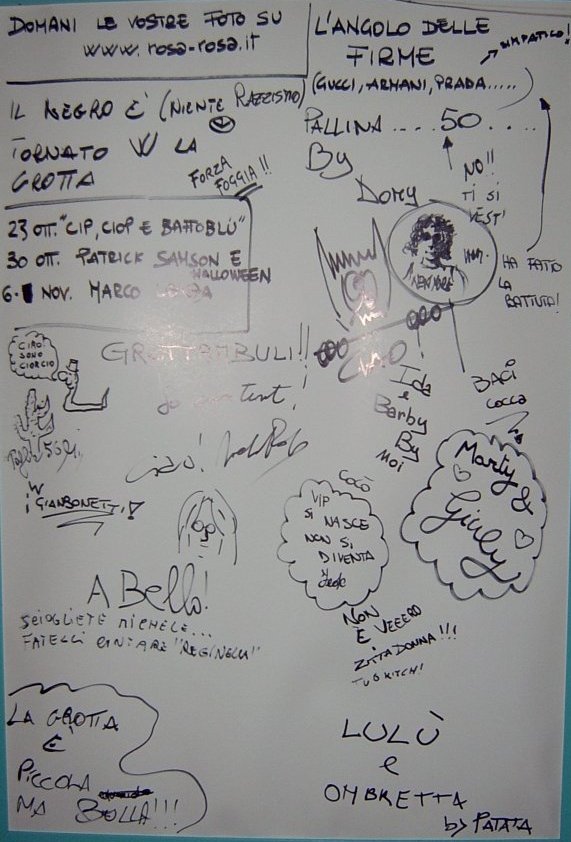 DOMANI LE VOSTRE FOTO SU
www.rosa-rosa.it
L'ANGOLO DELLE
FIRME
SIMPATICO!
(GUCCI, ARMANI, PRADA.....)
IL NEGRO E' (NIENTE RAZZISMO)
TORNATO W LA
GROTTA
FORZA
FOGGIA!!
PALLINA....50....
By
Dory
NO!!
TI SI
VEST'
HA FATTO
LA
BATTUTA!
23 OTT. "CIP, CIOP E BATTOBLU"
30 OTT. PATRICK SAMSON E
HALLOWEEN
6 NOV. MARCO
GROTTAMBULI!!
CIRO
SONO
GIORGIO
Ciao!
W
i GIANBONETTI!
Ida
e
Barby
By
Moi
BACI
cocca
Marty &
Giuly
COCÒ
VIP
SI NASCE
NON SI
DIVENTA
NON
È VEEERO
ZITTA DONNA!!!
A Bello!
SCIOGLIETE MICHELE...
FATELLI CANTARE "REGINELLA"
LA GROTTA
È
PICCOLA
MA BOLLA!!!
LULÙ
e
OMBRETTA
by PATATA